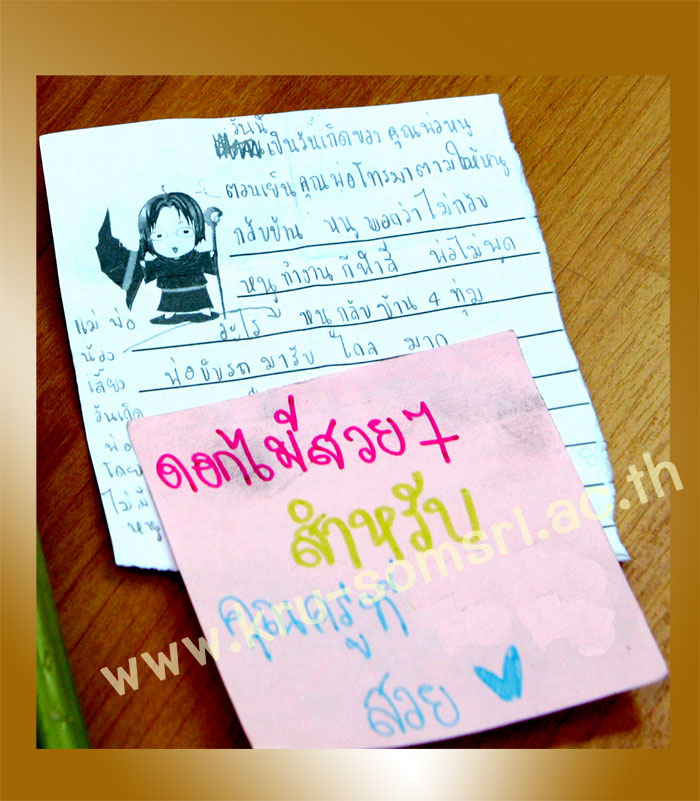 วันนี้
เป็นวันเกิดของ คุณพ่อหนู
ตอนเย็น คุณพ่อโทรมาตามให้หนู
กลับบ้าน หนู บอกว่าไม่กลับ
หนูทำงาน กีฬาสี พ่อไม่พูด
อะไร หนู กลับบ้าน 4 ทุ่ม
พ่อขับรถ มารับ ไกล มาก
แม่ พ่อ
น้อง
เลี้ยง
วันเกิด
พ่อ
โดย
ไม่มี
หนู
ดอกไม้สวย ๆ
สำหรับ
คุณครูที่
สวย
www.kru-somsri.ac.th